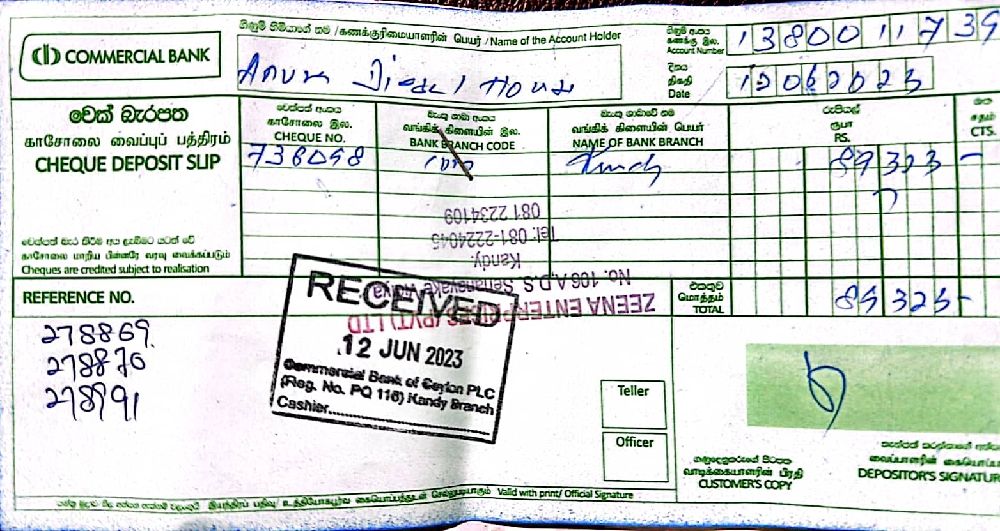 COMMERCIAL BANK
ගිණුම් හිමියාගේ නම / கணக்குரிமையாளரின் பெயர் / Name of the Account Holder
Anura Diesel House
ගිණුම් අංකය
கணக்கு இல.
Account Number
1380011739
දිනය
திகதி
Date
12062023
චෙක් බැරපත
காசோலை வைப்புப் பத்திரம்
CHEQUE DEPOSIT SLIP
චෙක්පත් අංකය
காசோலை இல.
CHEQUE NO.
738098
බැංකු ශාඛා අංකය
வங்கிக் கிளையின் இல.
BANK BRANCH CODE
බැංකු ශාඛාවේ නම
வங்கிக் கிளையின் பெயர்
NAME OF BANK BRANCH
Kandy
රුපියල්
ரூபா
RS.
89 323 -
சதம்
CTS.
චෙක්පත් බැර කිරීම අය ලැබීමට යටත් වේ
காசோலை மாறிய பின்னரே வரவு வைக்கப்படும்
Cheques are credited subject to realisation
එකතුව
மொத்தம்
TOTAL
89 323 -
REFERENCE NO.
278869
278870
278991
ZEENA ENTERPRISES (PVT) LTD
No. 106 A.D.S. Senanayake Vidiya
Kandy.
Tel: 081-2224045
081 2234109
RECEIVED
12 JUN 2023
Commercial Bank of Ceylon PLC
(Reg. No. PQ 116) Kandy Branch
Cashier
Teller
Officer
ගනුදෙනුකරුගේ පිටපත
வாடிக்கையாளரின் பிரதி
CUSTOMER'S COPY
DEPOSITOR'S SIGNATUR
Valid with print/ Official Signature